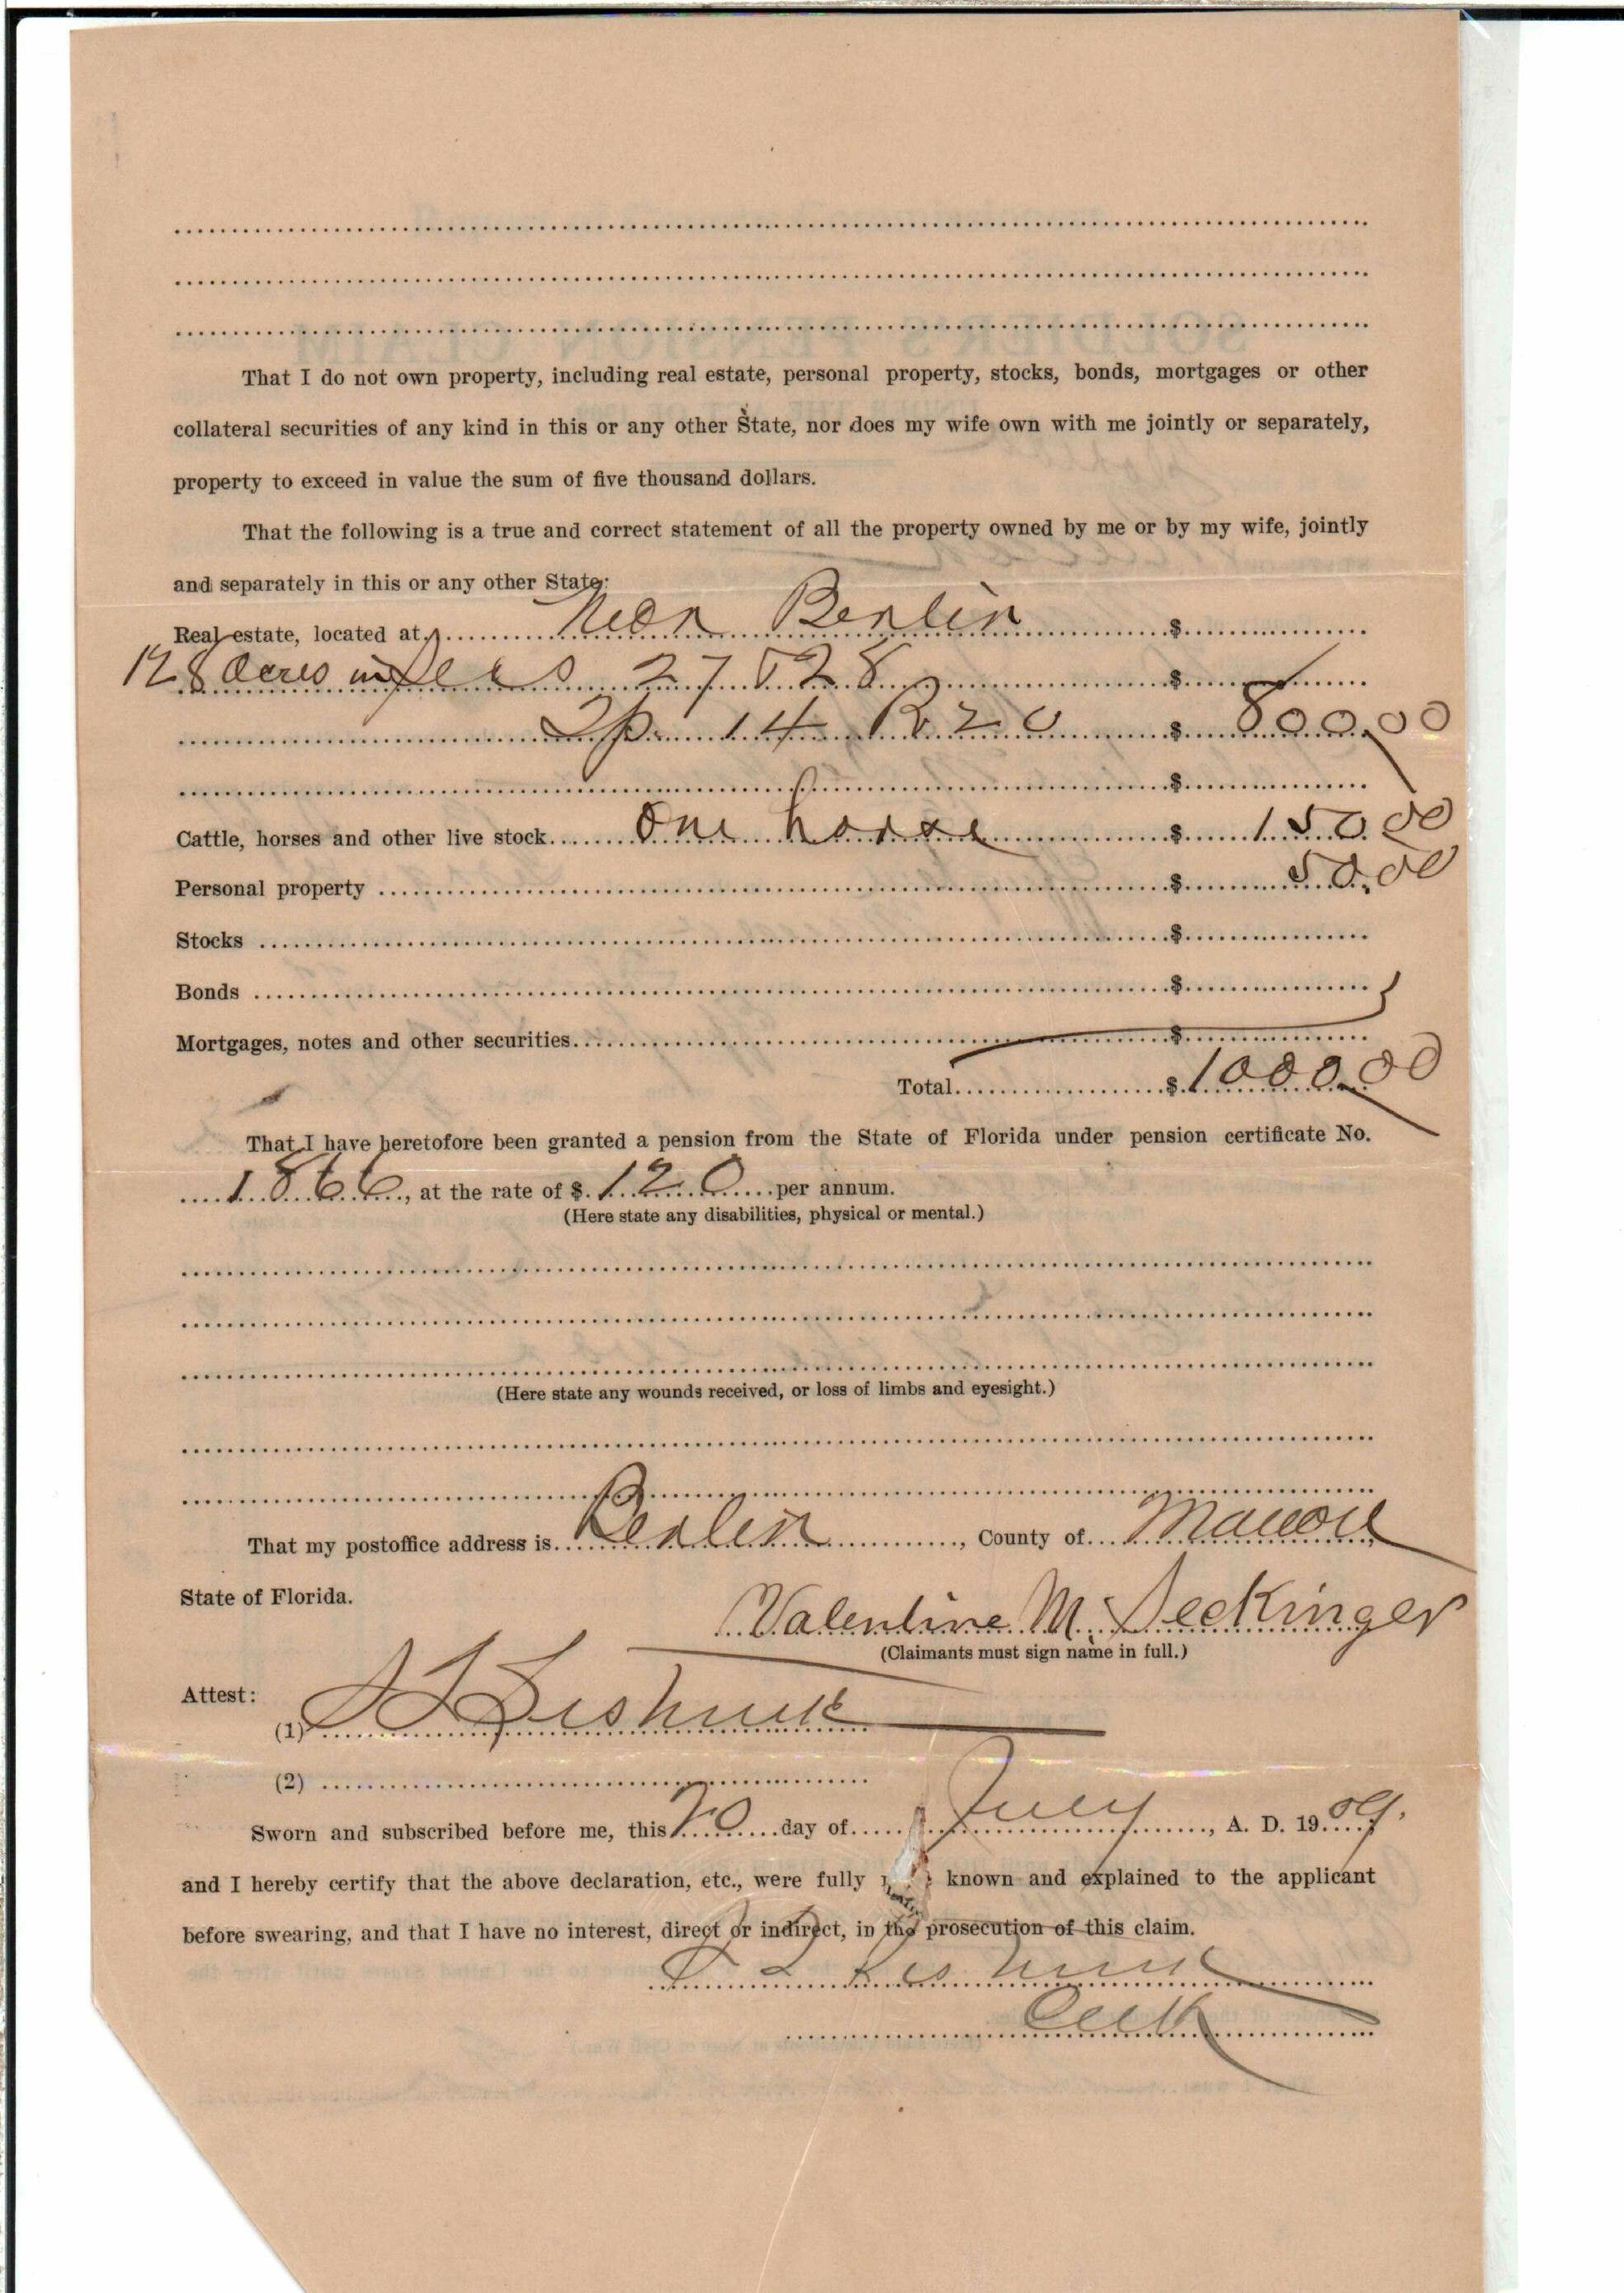 That I do not own property, including real estate, personal property, stocks, bonds, mortgages or other
collateral securities of any kind in this or any other State, nor does my wife own with me jointly or separately,
property to exceed in value the sum of five thousand dollars.
That the following is a true and correct statement of all the property owned by me or by my wife, jointly
and separately in this or any other State:
Real estate, located at Near Berlin $
128 acres in Secs 27 & 28 $
Tp 14 R 20 $ 800.00
$
Cattle, horses and other live stock One horse $ 150.00
Personal property $ 50.00
Stocks $
Bonds $
Mortgages, notes and other securities $
Total $ 1000.00
That I have heretofore been granted a pension from the State of Florida under pension certificate No.
1866, at the rate of $ 120 per annum.
(Here state any disabilities, physical or mental.)
(Here state any wounds received, or loss of limbs and eyesight.)
That my postoffice address is Berlin, County of Marion
State of Florida.
Valentine M. Seckinger
(Claimants must sign name in full.)
Attest:
(1)
(2)
Sworn and subscribed before me, this 20 day of July, A. D. 1909.
and I hereby certify that the above declaration, etc., were fully known and explained to the applicant
before swearing, and that I have no interest, direct or indirect, in the prosecution of this claim.
Clerk